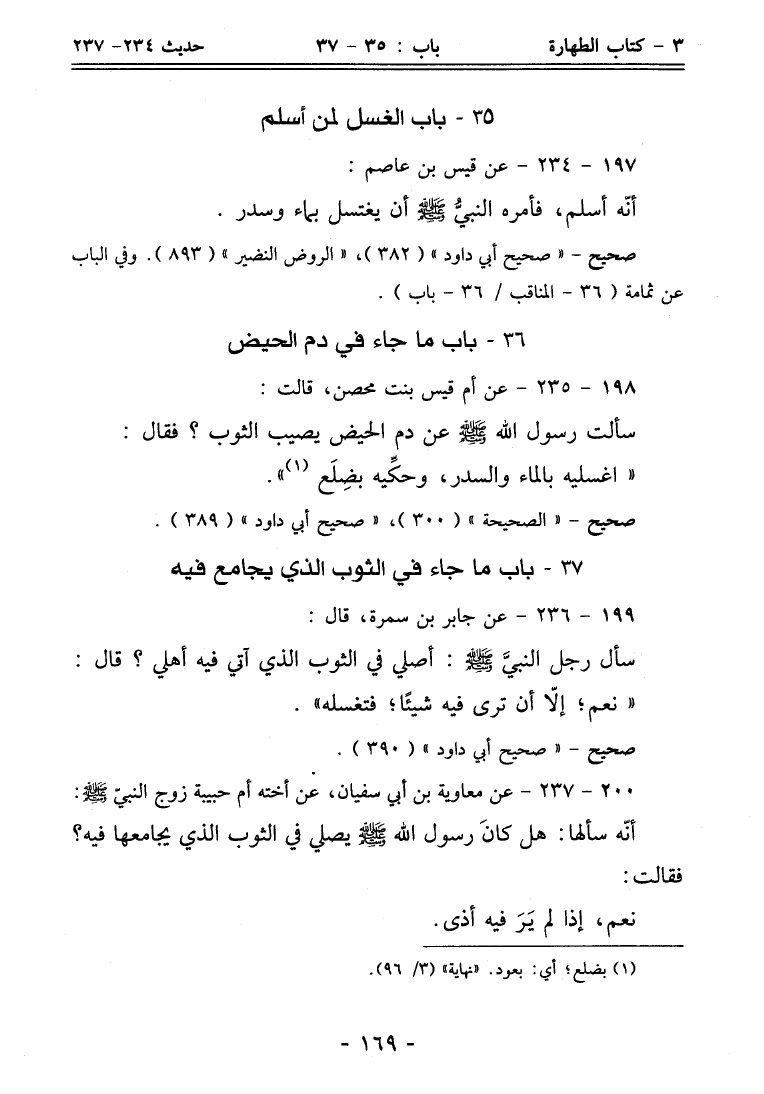 ٣ - كتاب الطهارة باب : ٣٥ - ٣٧ حديث ٢٣٤- ٢٣٧
٣٥ - باب الغسل لمن أسلم
١٩٧ - ٢٣٤ - عن قيس بن عاصم :
أنّه أسلم، فأمره النبيُّ ﷺ أن يغتسل بماء وسدر .
صحيح - « صحيح أبي داود » ( ٣٨٢ )، « الروض النضير » ( ٨٩٣ ). وفي الباب
عن ثمامة ( ٣٦ - المناقب / ٣٦ - باب ) .
٣٦ - باب ما جاء في دم الحيض
١٩٨ - ٢٣٥ - عن أم قيس بنت محصن، قالت :
سألت رسول الله ﷺ عن دم الحيض يصيب الثوب ؟ فقال :
« اغسليه بالماء والسدر، وحكِّيه بضِلَع (١)».
صحيح - « الصحيحة » ( ٣٠٠ )، « صحيح أبي داود » ( ٣٨٩ ) .
٣٧ - باب ما جاء في الثوب الذي يجامع فيه
١٩٩ - ٢٣٦ - عن جابر بن سمرة، قال :
سأل رجل النبيَّ ﷺ : أصلي في الثوب الذي آتي فيه أهلي ؟ قال :
« نعم؛ إلّا أن ترى فيه شيئًا؛ فتغسله» .
صحيح - « صحيح أبي داود » ( ٣٩٠ ) .
٢٠٠ - ٢٣٧ - عن معاوية بن أبي سفيان، عن أخته أم حبيبة زوج النبيّ ﷺ:
أنّه سألها: هل كانَ رسول الله ﷺ يصلي في الثوب الذي يجامعها فيه؟
فقالت:
نعم، إذا لم يَرَ فيه أذى.
(١) بضلع؛ أي: بعود. «نهاية» (٣/ ٩٦).
- ١٦٩ -